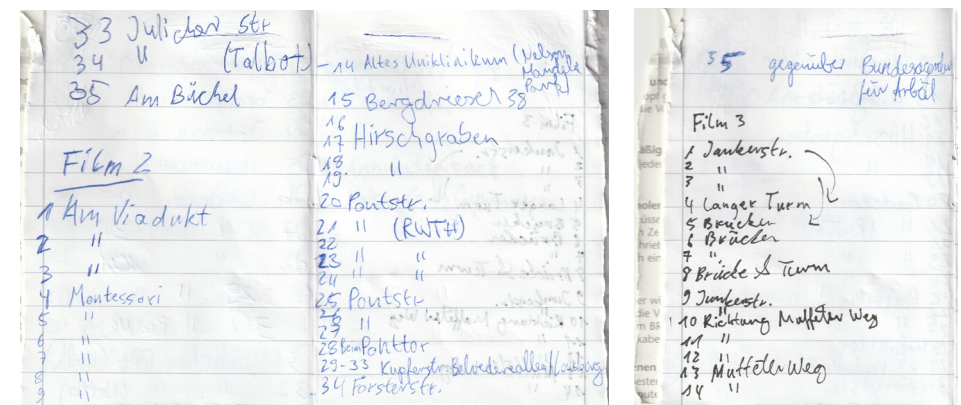 33 Jülicher Str
34 " (Talbot)
35 Am Büchel
Film 2
1 Am Viadukt
2 "
3 "
4 Montessori
5 "
6 "
7 "
8 "
9 "
-14 Altes Uniklinikum (Nelson
Mandela
Park)
15 Bergdriesch 38
16
17 Hirschgraben
18
19 "
20 Pontstr.
21 " (RWTH)
22
23 " "
24 " "
25 Pontstr
26
27 "
28 Beim Ponttor
29-33 Kupferstr. Belvedereallee/Lousberg
34 Försterstr.
35 gegenüber Bundesagentur
für Arbeit
Film 3
1 Junkerstr.
2 "
3 "
4 Langer Turm
5 Brücken
6 Brücken
7 "
8 Brücke & Turm
9 Junkerstr.
10 Richtung Muffeter Weg
11 "
12 "
13 Muffeter Weg
14 "